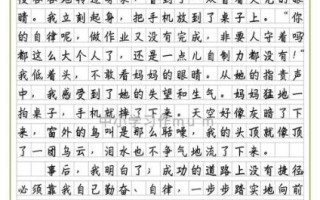 眼睛。我立刻起身，把手机放到了桌子上。“你
的自律呢，做作业又没有完成，非要人守着吗
都这么大个人了，还是一点儿自制力都没有！”
我低着头，不敢看妈妈的眼睛。从她的指责声
中，我感受到了她的失望和生气。妈妈猛地一
拍桌子，手机就摔了下来。天空好像灰暗了下
来，窗外的鸟叫是那么聒噪，我的头顶就像顶
了一团乌云，泪水也不争气地流了下来。
事后，我明白了；成功的道路上没有捷径
必须靠我自己勤奋、自律，一步步踏实地向前